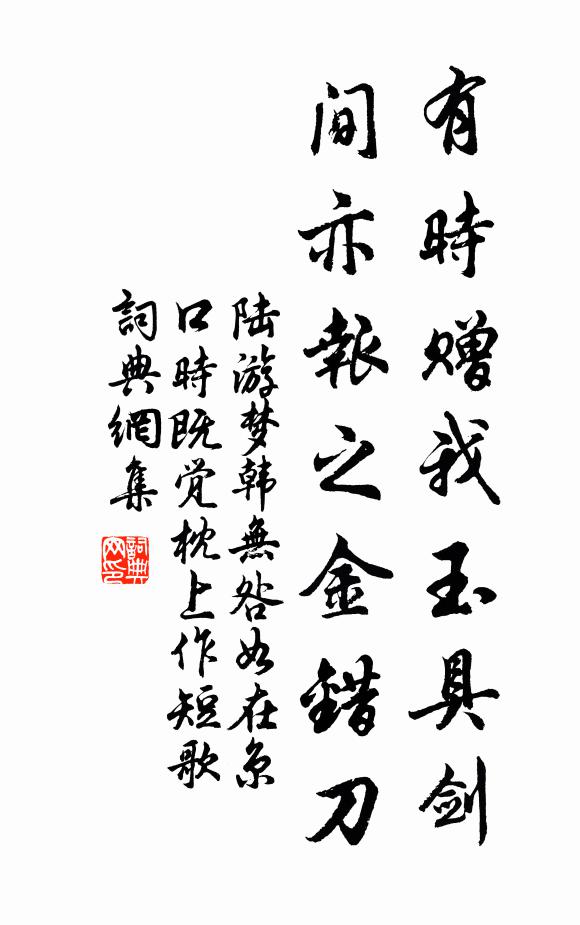 有時赠我玉具劍
间亦報之金錯刀
陆游梦韩無咎如在京
口時既觉枕上作短歌
詞典網集
詞典
网印